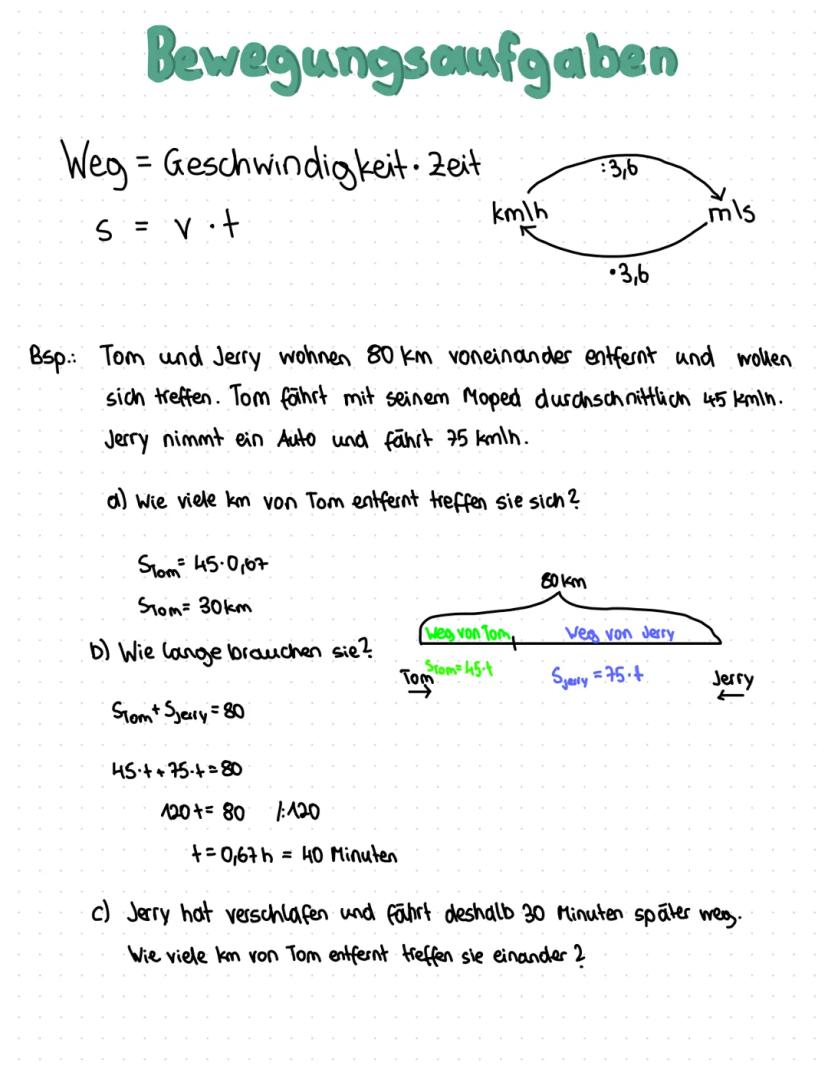 Bewegungsaufgaben
Weg = Geschwindigkeit · Zeit
s = v · t
:3,6
km/h
m/s
·3,6
Bsp.: Tom und Jerry wohnen 80 km voneinander entfernt und wollen
sich treffen. Tom fährt mit seinem Moped durchschnittlich 45 km/h.
Jerry nimmt ein Auto und fährt 75 km/h.
a) Wie viele km von Tom entfernt treffen sie sich?
STom = 45·0,67
STom = 30 km
80 km
Weg von Tom
Weg von Jerry
Tom
STom = 45·t
SJerry = 75·t
Jerry
b) Wie lange brauchen sie?
STom + SJerry = 80
45·t + 75·t = 80
120t = 80 /:120
t = 0,67h = 40 Minuten
c) Jerry hat verschlafen und fährt deshalb 30 Minuten später weg.
Wie viele km von Tom entfernt treffen sie einander?